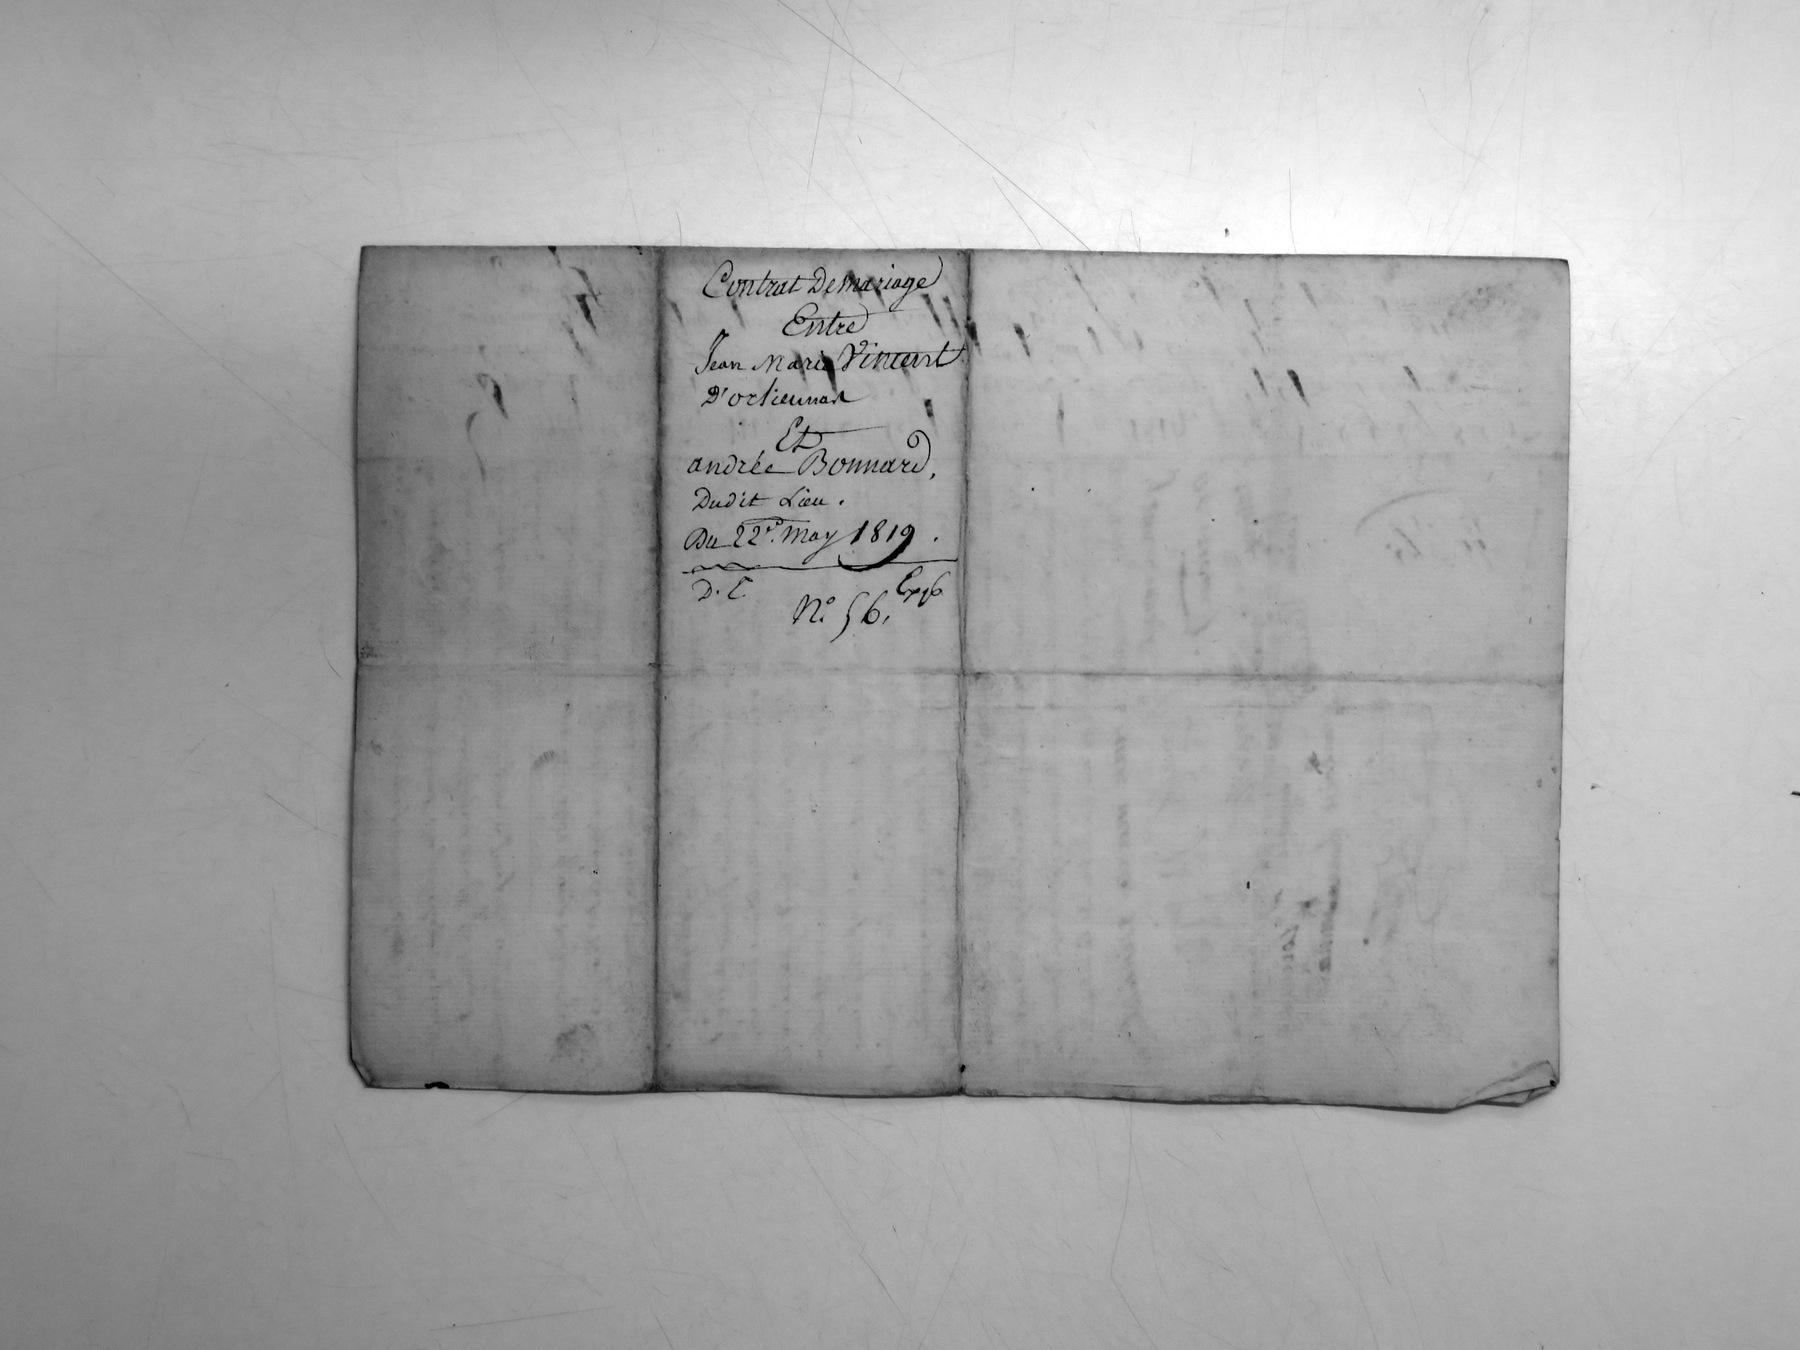 Contrat De mariage
Entre
Jean Marie Vincent
D'orlieunas
Et
andrée Bonnard,
Dudit Lieu.
Du 22e. May 1819.
D. E
N.o 56.